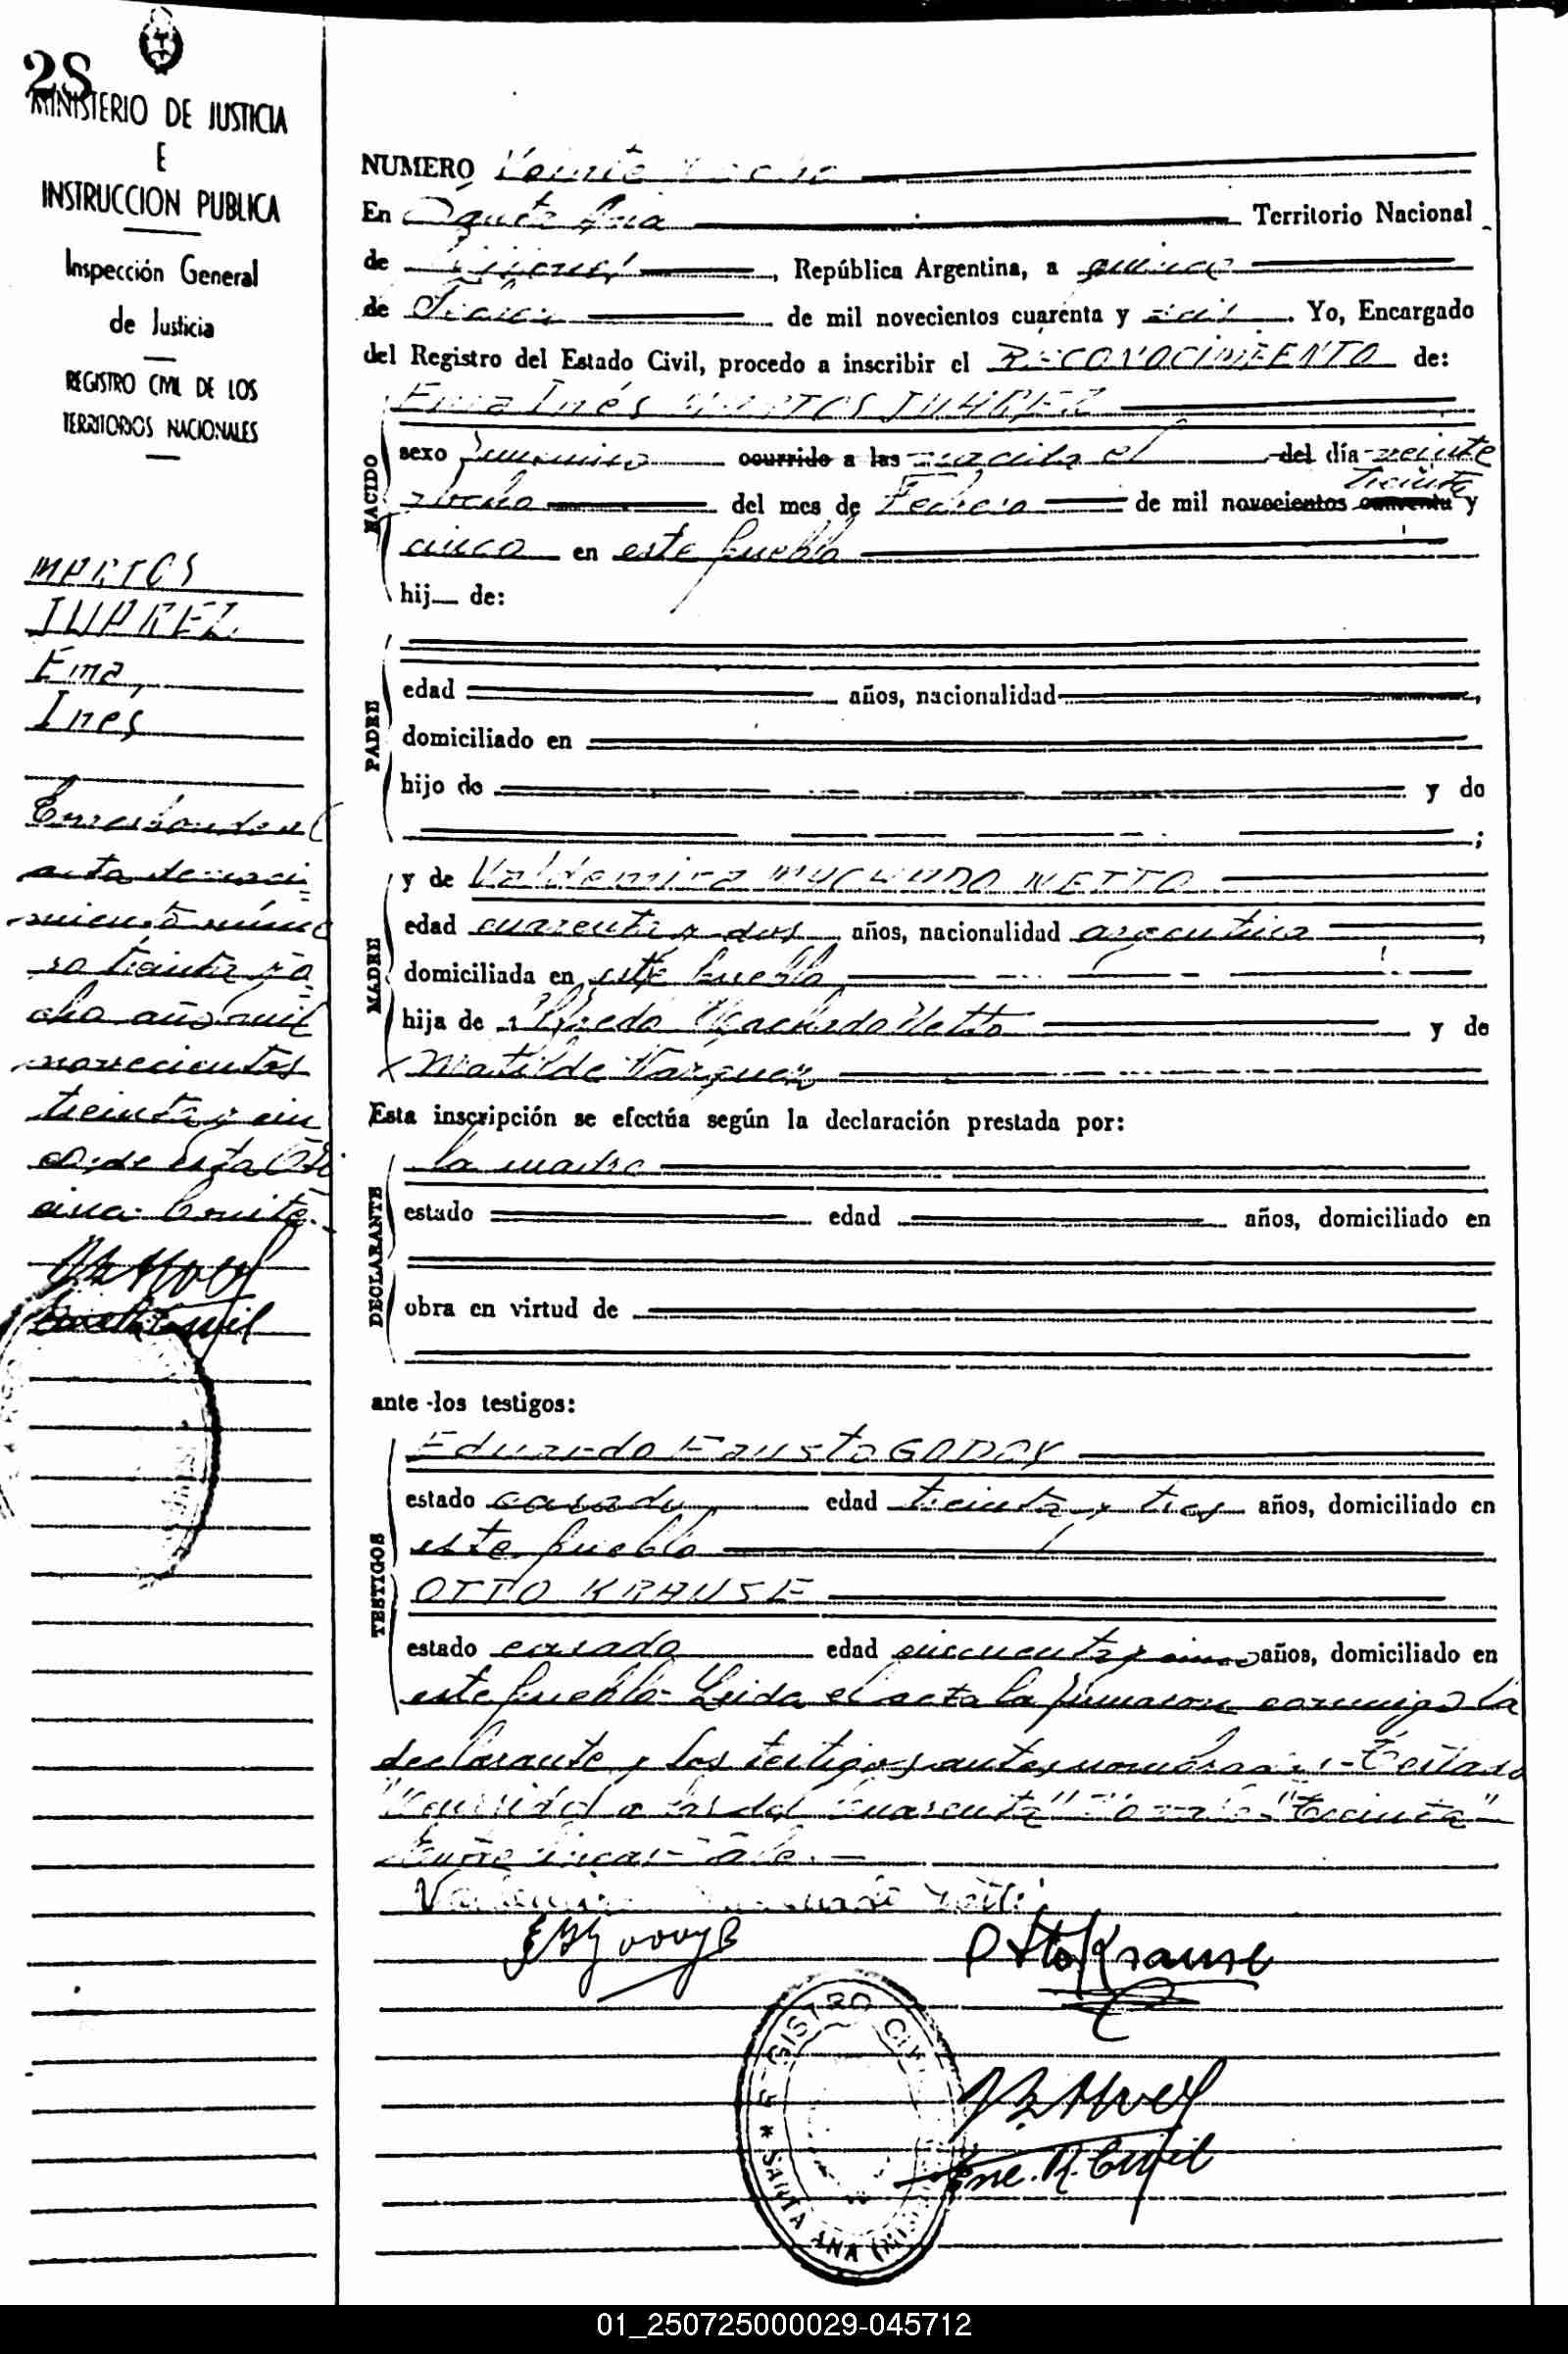 28
MINISTERIO DE JUSTICIA
E
INSTRUCCION PUBLICA
Inspección General
de Justicia
REGISTRO CIVIL DE LOS
TERRITORIOS NACIONALES
MARTOS
JUAREZ
Ema
Inés
Corresponde al
acta de naci=
miento núme
ro treinta y o
cho año mil
novecientos
treinta y cin
co, de esta Ofi
cina. Conste.-
Enc. R. Civil
NUMERO Veinte y ocho
En Santa Ana Territorio Nacional
de Misiones, República Argentina, a quince
de de mil novecientos cuarenta y seis. Yo, Encargado
del Registro del Estado Civil, procedo a inscribir el RECONOCIMIENTO de:
Ema Inés MARTOS JUAREZ
NACIDO
sexo femenino ocurrido a las nacida el del día veinte
treinta
y ocho del mes de Febrero de mil novecientos cuarenta y
cinco en este pueblo
hij de:
PADRE
edad años, nacionalidad
domiciliado en
hijo de y de
;
MADRE
y de Valdemira MACHADO NETTO
edad cuarenta y dos años, nacionalidad argentina
domiciliada en este pueblo
hija de Alfredo Machado Netto y de
Matilde Vazquez
Esta inscripción se efectúa según la declaración prestada por:
DECLARANTE
la madre
estado edad años, domiciliado en
obra en virtud de
ante los testigos:
TESTIGOS
Eduardo Fausto GODOY
estado casado edad treinta y tres años, domiciliado en
este pueblo
OTTO KRAUSE
estado casado edad cincuenta y cinco años, domiciliado en
este pueblo.- Leida el acta la firmaron conmigo la
declarante y los testigos antes nombrados.- Testado
"ocurrido a las del cuarenta" no vale "treinta"
Entre lineas vale.-
Valdemira Machado Netto
Otto Krause
Enc. R. Civil
REGISTRO CIVIL
* SANTA ANA (MISIONES)
01_250725000029-045712